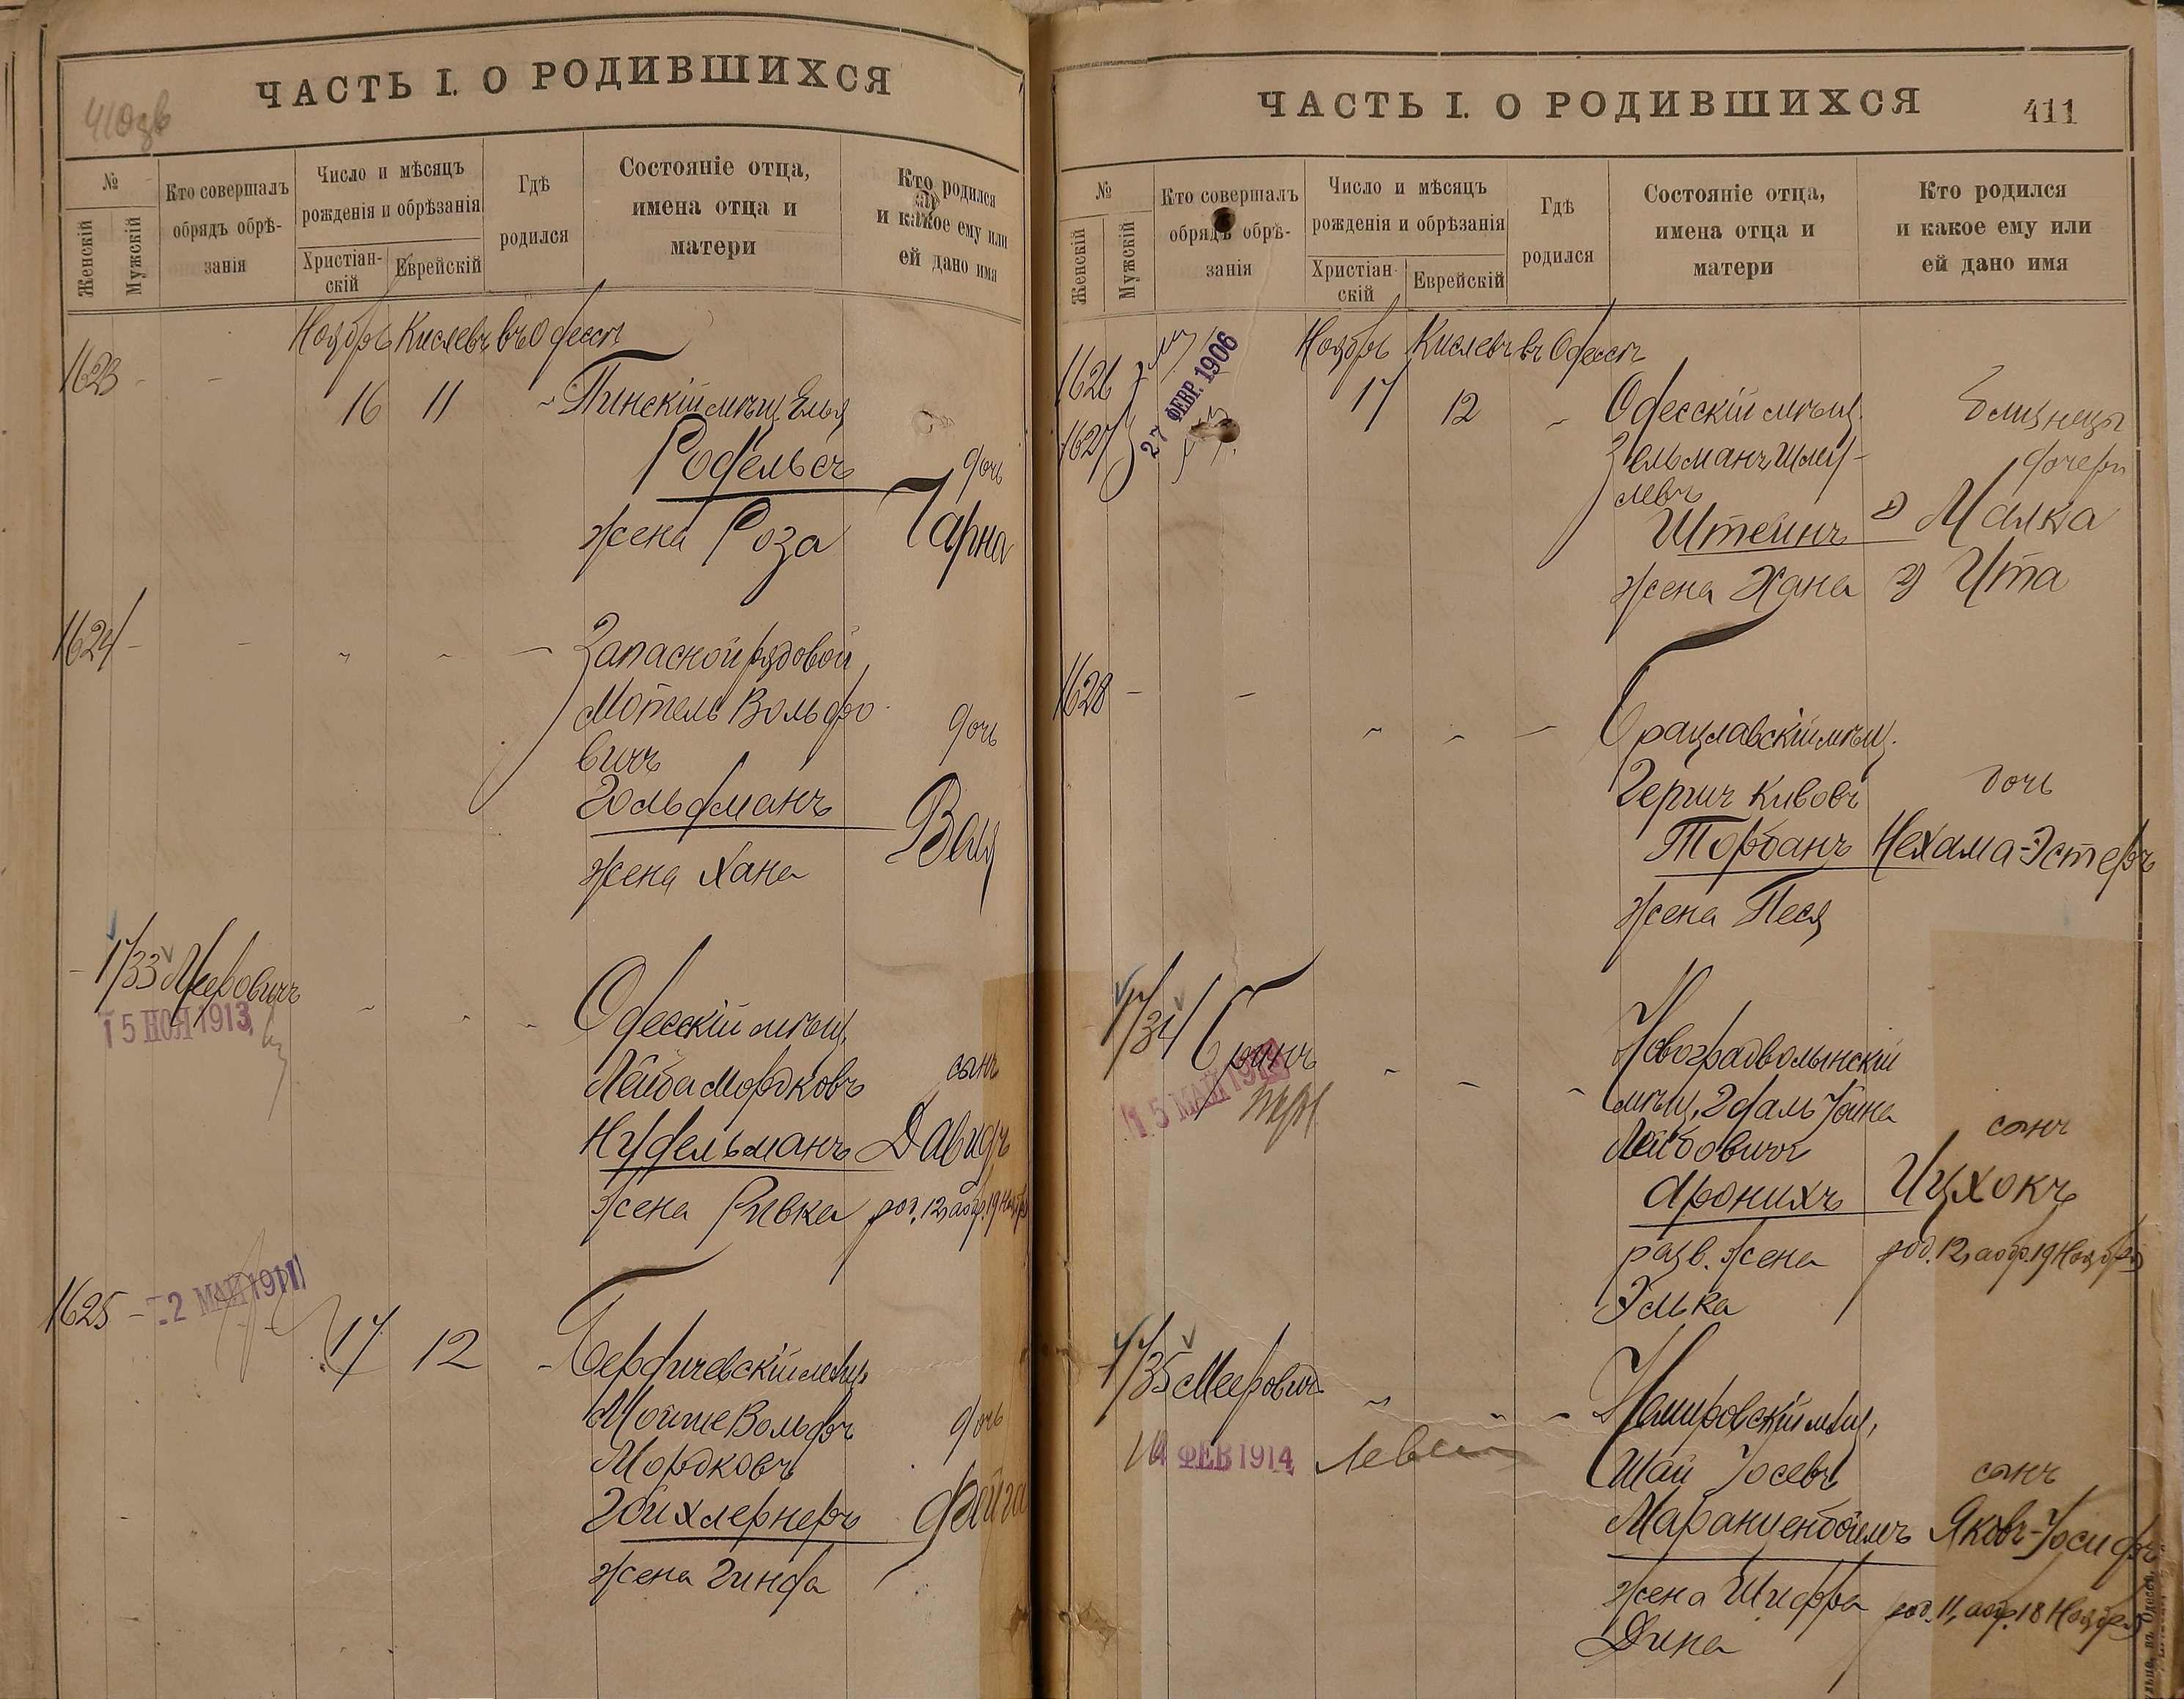 410 об
ЧАСТЬ I. О РОДИВШИХСЯ
№
Женскій
Мужскій
Кто совершалъ
обрядъ обрѣ-
занія
Число и мѣсяцъ
рожденія и обрѣзанія
Христіан-
скій
Еврейскій
Гдѣ
родился
Состояніе отца,
имена отца и
матери
Кто родился
и какое ему или
ей дано имя
Ноябрь Кислевъ въ Одессѣ
1623 - -
16 11 " Пинскій мѣщ. Елья
Рофельсъ
дочь
жена Роза
Чарна
1624 - - " " - Запасной рядовой
Мотель Вольфо-
вичъ
дочь
Гольфманъ
жена Хана
Вая
- 1733 Меровичъ
15 НОЯ 1913
Одесскій мѣщ.
Лейба Мордковъ
сынъ
Нудельманъ Давидъ
жена Ривка род. 12, а обр. 19 Ноября
1625 -
2 МАЙ 1911
17 12 - Бердичевскій мѣщ.
Мойше Вольфъ
дочь
Мордковъ
Гойхлернеръ Фейга
жена Гинда
ЧАСТЬ I. О РОДИВШИХСЯ
411
№
Женскій
Мужскій
Кто совершалъ
обрядъ обрѣ-
занія
Число и мѣсяцъ
рожденія и обрѣзанія
Христіан-
скій
Еврейскій
Гдѣ
родился
Состояніе отца,
имена отца и
матери
Кто родился
и какое ему или
ей дано имя
Ноябрь Кислевъ въ Одессѣ
1626
1627
27 ФЕВР. 1906
17 12 " Одесскій мѣщ.
близнецы
Зельманъ Шму-
левъ
дочери
Штейнъ 1) Малка
жена Хана 2) Ита
1628 - - " " - Брацлавскій мѣщ.
Гершъ Кивовъ
дочь
Торбанъ Нехама-Эстеръ
жена Песя
1734 Бринъ
15 МАЙ
Новоградволынскій
мѣщ. Эфаль Іойна
Лейбовичъ
сынъ
Аронихъ Ицхокъ
разв. жена
род. 12, а обр. 19 Ноября
Элька
1735 Меерович
14 ФЕВ 1914
Немировскій мѣщ.
Шай Іосевъ
сынъ
Маранценбоймъ Яковъ-Іосифъ
жена Шифра
род. 11, а обр. 18 Ноября
Дина